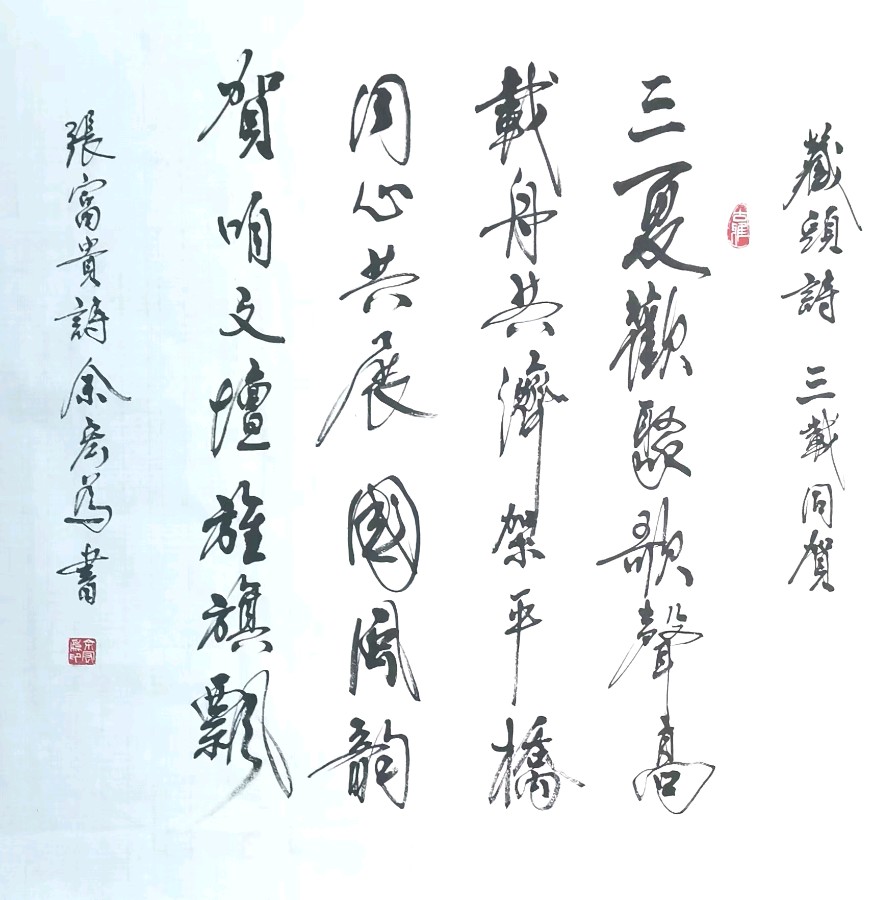 藏頭詩 三載同賀
三夏歡聚歌聲高
載舟共濟架平橋
同心共展國風韵
賀咱文壇旌旗飄
張富貴詩余宏為書